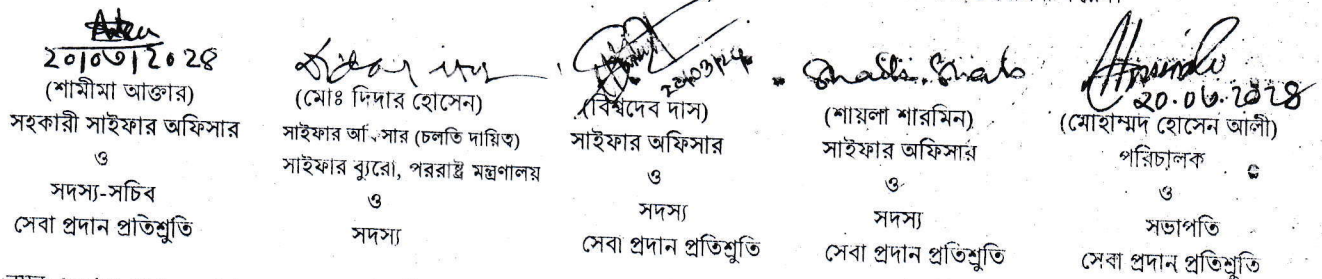 ২০/০৩/২০২৪
(শামীমা আক্তার)
সহকারী সাইফার অফিসার
ও
সদস্য-সচিব
সেবা প্রদান প্রতিশ্রুতি
(মোঃ দিদার হোসেন)
সাইফার অফিসার (চলতি দায়িত্ব)
সাইফার ব্যুরো, পররাষ্ট্র মন্ত্রণালয়
ও
সদস্য
20/03/24
(বিশ্বদেব দাস)
সাইফার অফিসার
ও
সদস্য
সেবা প্রদান প্রতিশ্রুতি
(শায়লা শারমিন)
সাইফার অফিসার
ও
সদস্য
সেবা প্রদান প্রতিশ্রুতি
২০.০৩.২০২৪
(মোহাম্মদ হোসেন আলী)
পরিচালক
ও
সভাপতি
সেবা প্রদান প্রতিশ্রুতি